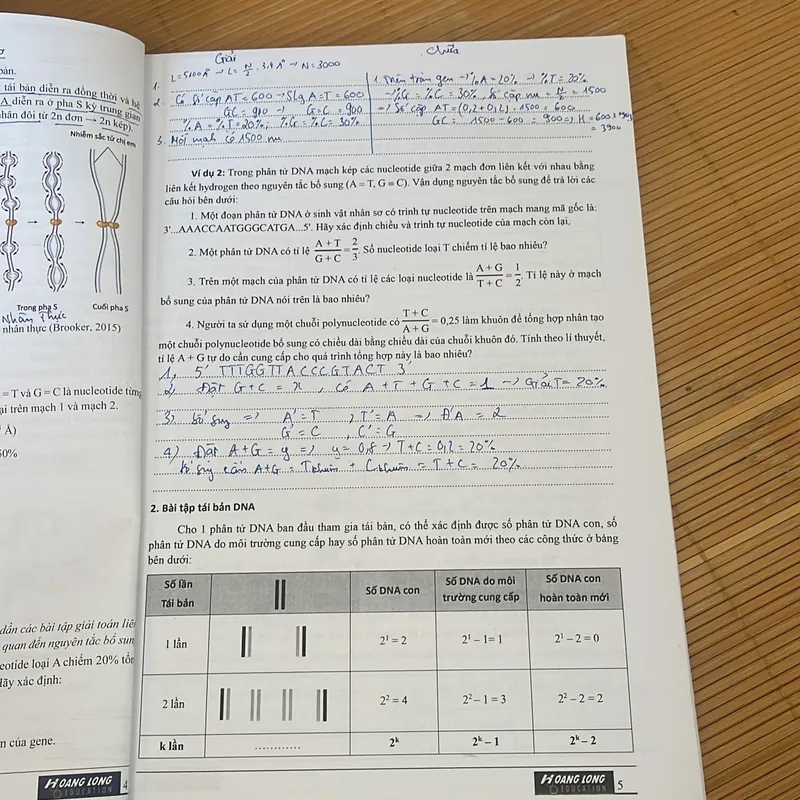 tái bản diễn ra đồng thời và hệ
A diễn ra ở pha S kỳ trung gian
nhân đôi từ 2n đơn → 2n kép).
Nhiễm sắc tử chị em
Trong pha S
Cuối pha S
Nhân Thực
nhân thực (Brooker, 2015)
= T và G = C là nucleotide từng
ại trên mạch 1 và mạch 2.
Å)
50%
dẫn các bài tập giải toán liên
quan đến nguyên tắc bổ sung
eotide loại A chiếm 20% tổn
Hãy xác định:
n của gene.
HOANG LONG
EDUCATION
4
Giải
Chữa
1. L=5100A° → L= N/2 . 3,4 A° → N=3000
2. Có Số cặp AT=600 → Slg A=T=600
GC = 910 → G=C = 900
%A = %T=20%; %G = %C= 30%
3. Mỗi mạch có 1500 nu
1. Trên toàn gen → %A=20% → %T=20%
→ %G = %C = 30%, Số cặp nu = N/2 = 1500
→ Số cặp AT = (0,2+0,2). 1500 = 600
GC = 1500 - 600 = 900
= 3900
Ví dụ 2: Trong phân tử DNA mạch kép các nucleotide giữa 2 mạch đơn liên kết với nhau bằng
liên kết hydrogen theo nguyên tắc bổ sung (A = T, G ≡ C). Vận dụng nguyên tắc bổ sung để trả lời các
câu hỏi bên dưới:
1. Một đoạn phân tử DNA ở sinh vật nhân sơ có trình tự nucleotide trên mạch mang mã gốc là:
3'...AAACCAATGGGCATGA...5'. Hãy xác định chiều và trình tự nucleotide của mạch còn lại,
2. Một phân tử DNA có tỉ lệ (A + T)/(G + C) = 2/3. Số nucleotide loại T chiếm tỉ lệ bao nhiêu?
3. Trên một mạch của phân tử DNA có tỉ lệ các loại nucleotide là (A + G)/(T + C) = 1/2. Tỉ lệ này ở mạch
bổ sung của phân tử DNA nói trên là bao nhiêu?
4. Người ta sử dụng một chuỗi polynucleotide có (T + C)/(A + G) = 0,25 làm khuôn để tổng hợp nhân tạo
một chuỗi polynucleotide bổ sung có chiều dài bằng chiều dài của chuỗi khuôn đó. Tính theo lí thuyết,
tỉ lệ A + G tự do cần cung cấp cho quá trình tổng hợp này là bao nhiêu?
1, 5' TTTGGTTACCCGTACT 3'
2) Đặt G+C = x , có A + T + G + C = 1 → Giải T= 20%
3) bổ sung => A' = T ; T' = A => = 2
G' = C , C' = G
4) Đặt A+G = y => y = 0,8 → T+C = 0,2 = 20%
bổ sung cần A+G = Tkhuôn + Ckhuôn = T+C = 20%
2. Bài tập tái bản DNA
Cho 1 phân tử DNA ban đầu tham gia tái bản, có thể xác định được số phân tử DNA con, số
phân tử DNA do môi trường cung cấp hay số phân tử DNA hoàn toàn mới theo các công thức ở bảng
bên dưới:
Số lần Tái bản
Số DNA con
Số DNA do môi trường cung cấp
Số DNA con hoàn toàn mới
1 lần 2¹ = 2 2¹ – 1= 1 2¹ – 2 = 0
2 lần 2² = 4 2² – 1 = 3 2² – 2 = 2
k lần ............ 2ᵏ 2ᵏ – 1 2ᵏ – 2
HOANG LONG
EDUCATION
5